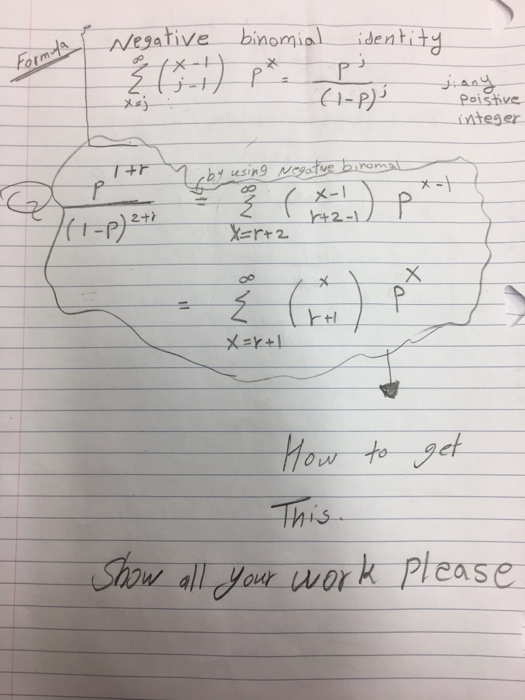 Formula
Negative binomial identity
∞
Σ (x-1 / j-1) p^x = p^j / (1-p)^j
x=j
j: any
poistive
integer
by using Negatve binomal
p^(1+r) / (1-p)^(2+r) = ∞ Σ x=r+2 (x-1 / r+2-1) p^(x-1)
= ∞ Σ x=r+1 (x / r+1) p^x
How to get
This.
Show all your work please